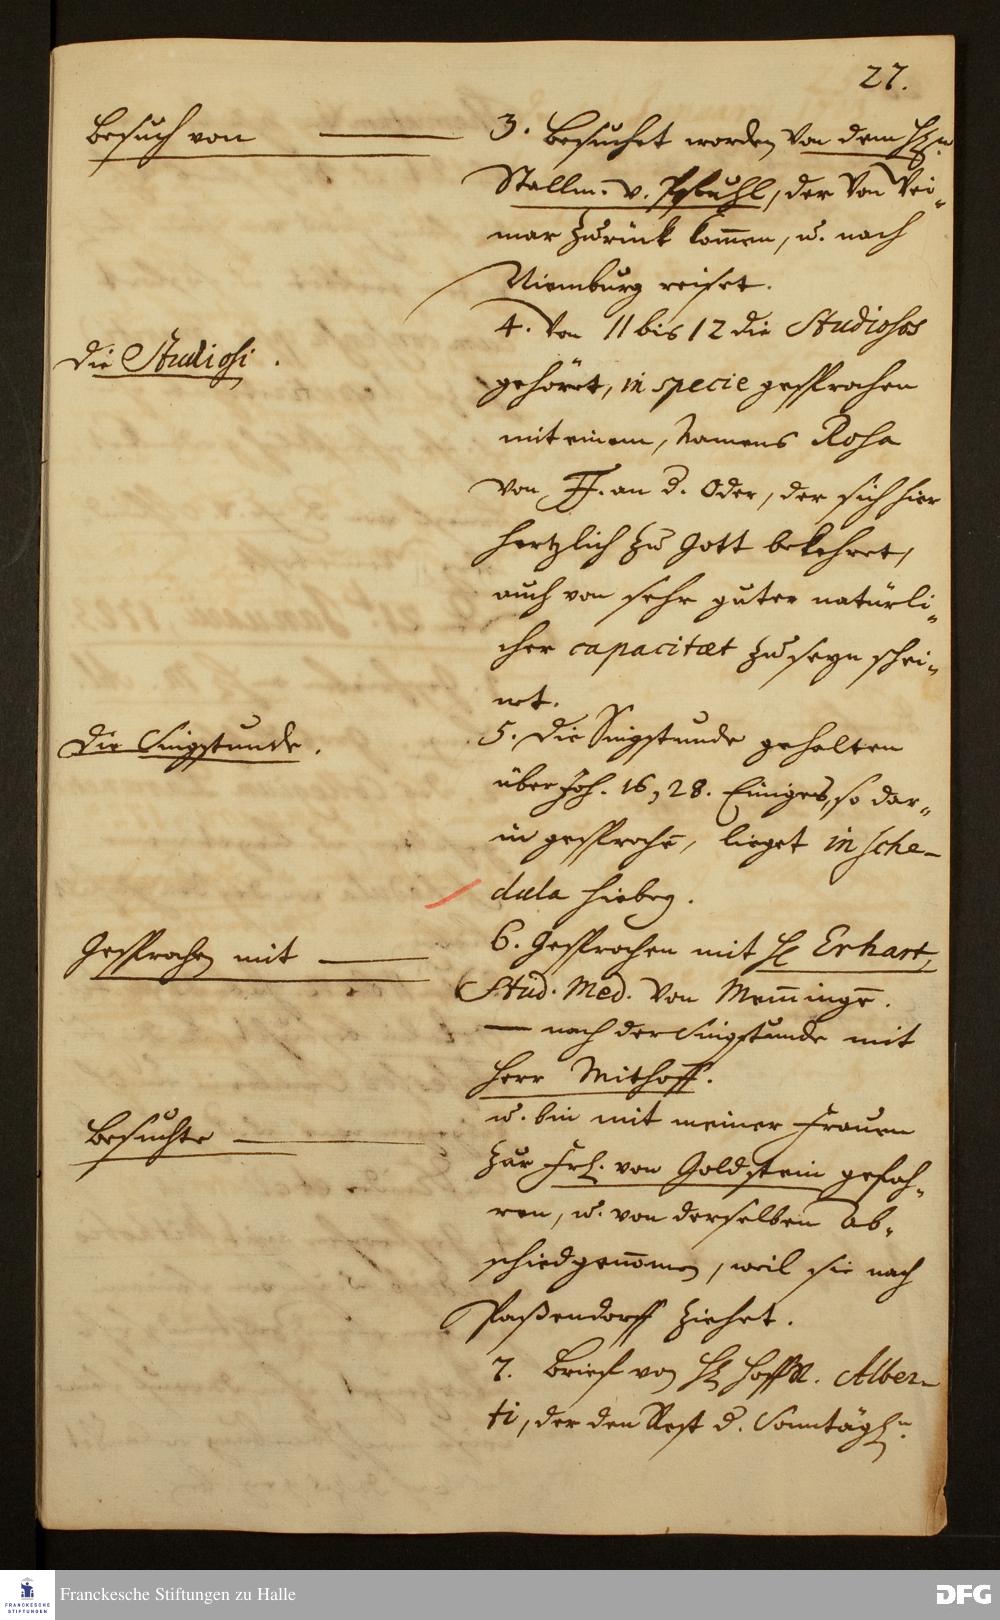 27.
Besuch von
3. Besuchet worden von dem H.n
Stallm. v. Pfuhl, der von Wei-
mar zurück kommen, u. nach
Nienburg reiset.
Die Studiosi.
4. Von 11 bis 12 die Studiosos
gehöret, in specie gesprochen
mit einem, Namens Rosa
von FF. an d. Oder, der sich hier
hertzlich zu Gott bekehret,
auch von sehr guter natürli-
cher capacitæt zu seyn schei-
net.
Die Singstunde.
5. Die Singstunde gehalten
über Joh. 16, 28. Einiges, so dar-
in gesprochē, lieget in sche-
dula hiebey.
Gesprochen mit
6. Gesprochen mit H. Erhart,
Stud. Med. von Mem̄ingē.
— nach der Singstunde mit
Herr Mithoff.
Besuchte
u. bin mit meiner Frauen
zur Frl. von Goldstein gefah-
ren, u. von derselben Ab-
schied genom̄en, weil sie nach
Paßendorff ziehet.
7. Brief von H. HoffR. Alber-
ti, der den Rest d. Sonntägl.n
Franckesche Stiftungen zu Halle
FRANCKESCHE
STIFTUNGEN
DFG